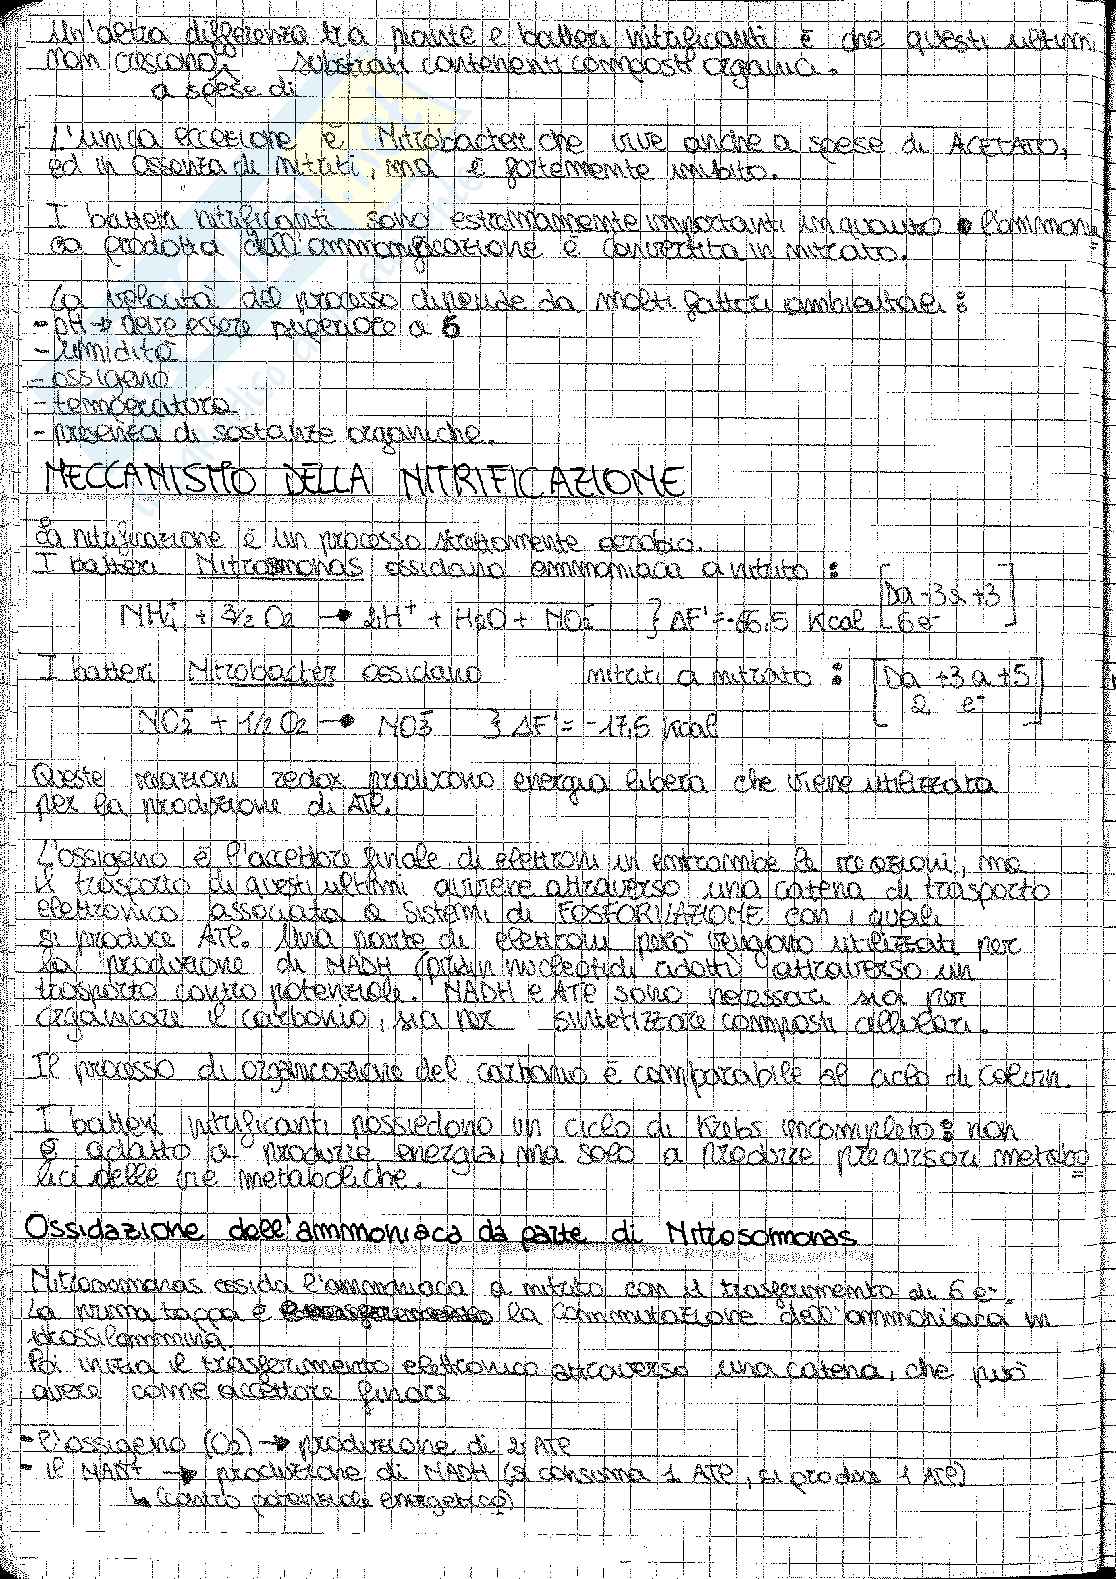 Un'altra differenza tra piante e batteri nitrificanti è che questi ultimi
non crescono substrati contenenti composti organici.
a spese di
L'unica eccezione è Nitrobacter che vive anche a spese di ACETATO,
ed in assenza di nitriti, ma è fortemente inibito.
I batteri nitrificanti sono estremamente importanti in quanto l'ammonia
ca prodotta dall'ammonificazione è convertita in nitrato.
La velocità del processo dipende da molti fattori ambientali:
- pH → deve essere superiore a 6
- umidità
- ossigeno
- temperatura
- presenza di sostanze organiche.
MECCANISMO DELLA NITRIFICAZIONE
La nitrificazione è un processo strettamente aerobio.
I batteri Nitrosomonas ossidano ammoniaca a nitrito: [Da -3 a +3
NH4+ + 3/2 O2 → 2H+ + H2O + NO2- } ΔF' = -66,5 Kcal 6e-]
I batteri Nitrobacter ossidano nitriti a nitrato: [Da +3 a +5
2 e-]
NO2- + 1/2 O2 → NO3- } ΔF' = -17,5 Kcal
Queste reazioni redox producono energia libera che viene utilizzata
per la produzione di ATP.
L'ossigeno è l'accettore finale di elettroni in entrambe le reazioni, ma
il trasporto di questi ultimi avviene attraverso una catena di trasporto
elettronico associata a sistemi di FOSFORILAZIONE con i quali
si produce ATP. Una parte di elettroni però vengono utilizzati per
la produzione di NADH (piridin nucleotidi ridotti) attraverso un
trasporto contro potenziale. NADH e ATP sono necessari sia per
organicare il carbonio, sia per sintetizzare composti cellulari.
Il processo di organicazione del carbonio è comparabile al ciclo di Calvin.
I batteri nitrificanti possiedono un ciclo di Krebs incompleto: non
è adatto a produrre energia, ma solo a produrre precursori metabo
lici delle vie metaboliche.
Ossidazione dell'ammoniaca da parte di Nitrosomonas
Nitrosomonas ossida l'ammoniaca a nitrito con il trasferimento di 6 e-.
La prima tappa è la commutazione dell'ammoniaca in
idrossilammina.
Poi inizia il trasferimento elettronico attraverso una catena, che può
avere come accettore finale
- l'ossigeno (O2) → produzione di 2 ATP
- il NAD+ → produzione di NADH (si consuma 1 ATP, si produce 1 ATP)
↳ (contro potenziale energetico)